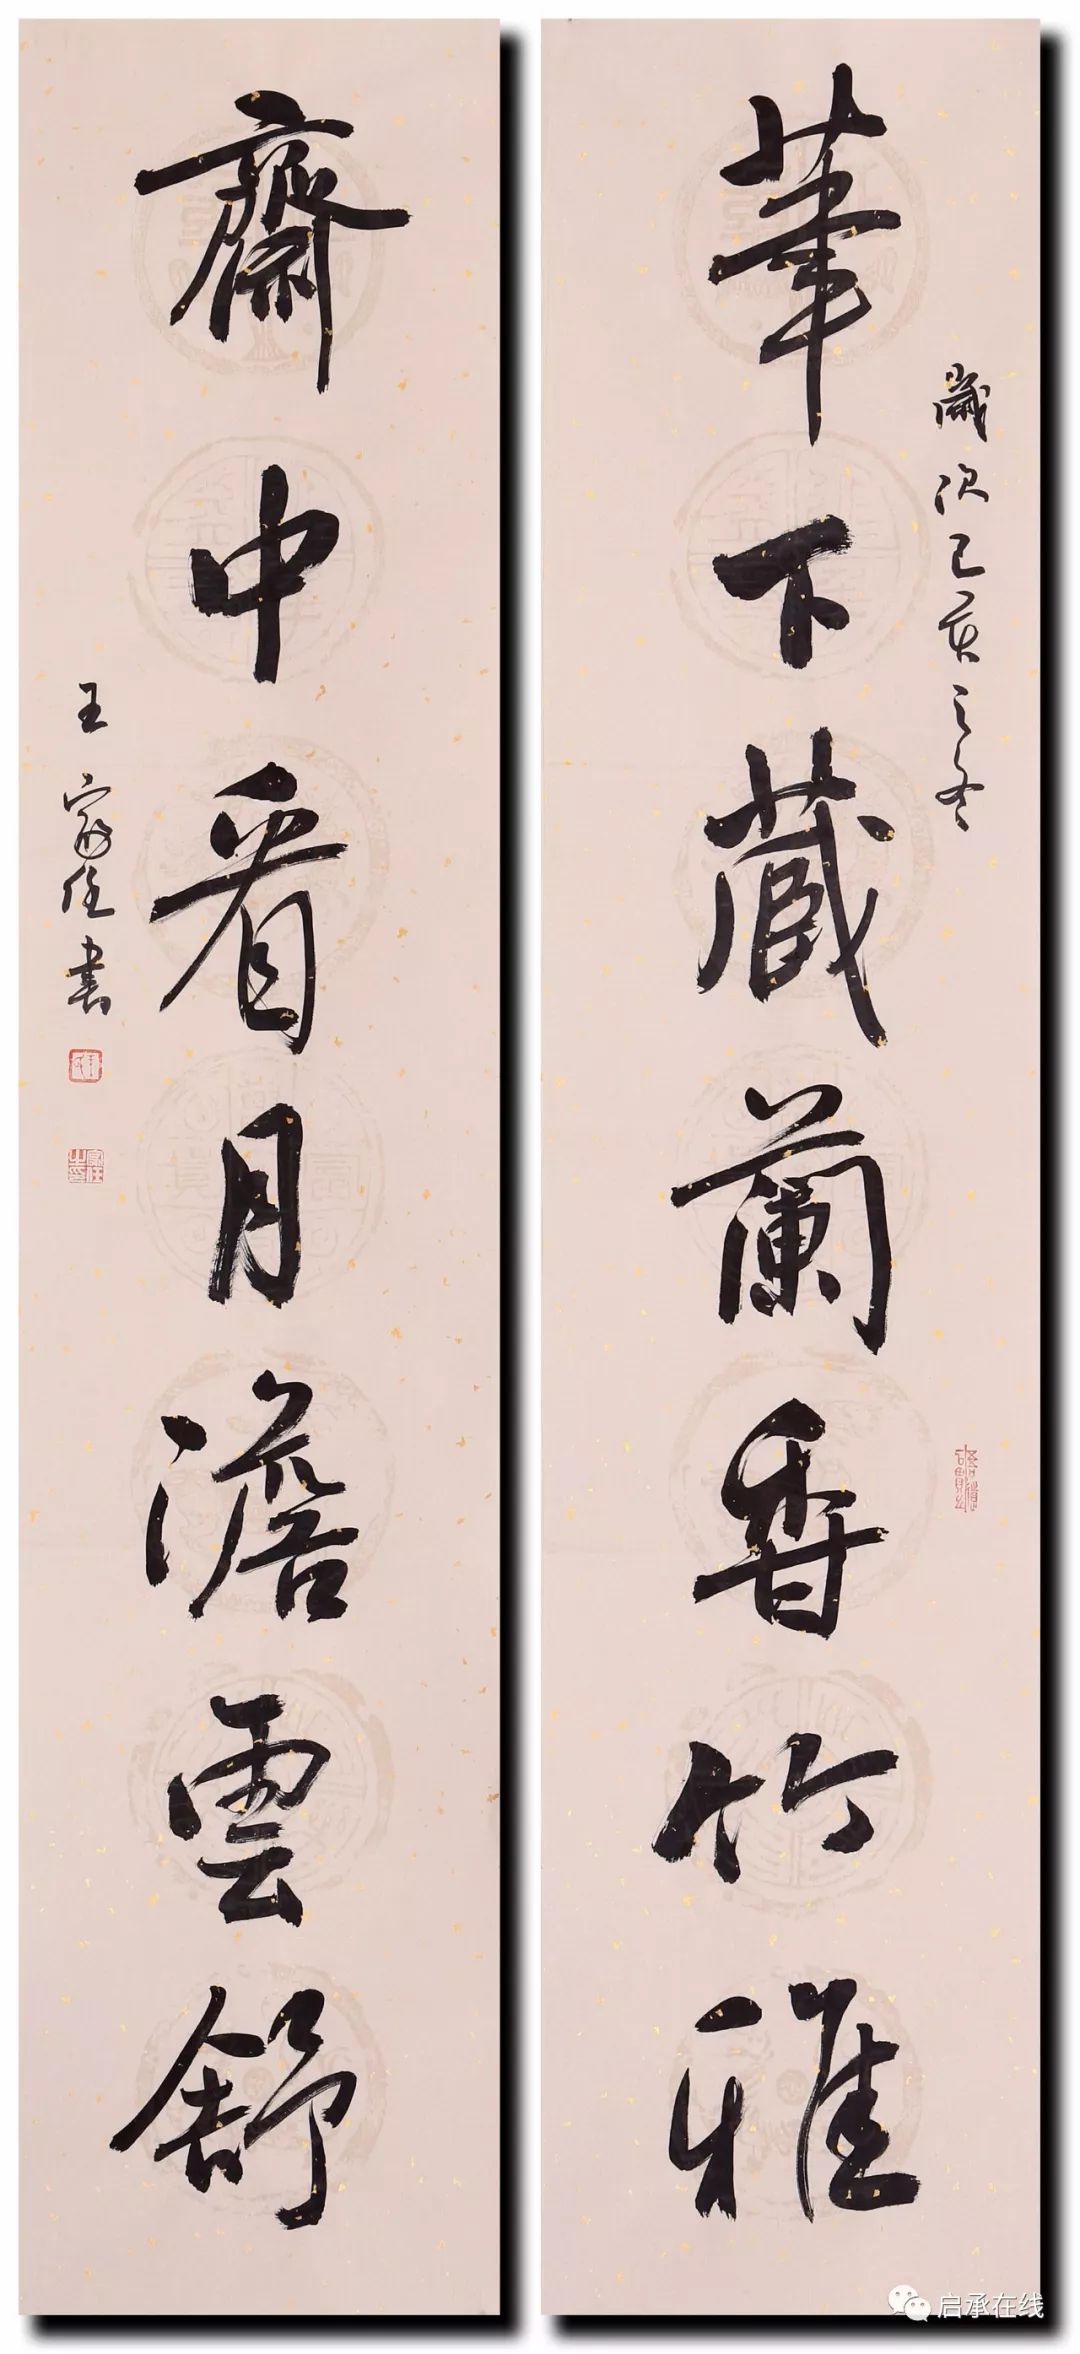 筆下藏蘭香竹雅
歲次己亥之冬
齋中看月澹雲舒
王家任書
启承在线